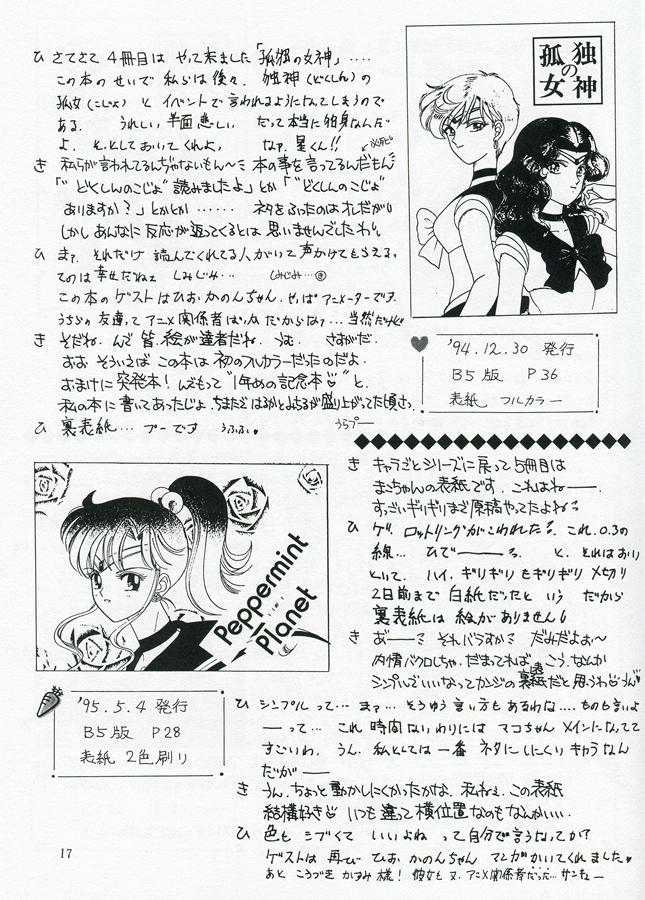 孤独の女神
ひ さてさて4冊目は やって来ました「孤独の女神」‥‥
この本のせいで 私らは後々、独神(どくしん)の
孤女(こじょ) と イベントで言われるようになってしまうので
ある. うれしい, 半面 悲しい だって本当に独身なんだ
よ、そっとしておいてくれよ, なァ, 星くん!!
き 私らが言われてるんぢゃないもん〜 本の事を言ってるんだもん
「“どくしんのこじょ”読みましたよ」とか「“どくしんのこじょ”
ありますか?」とかとか‥‥‥ ネタをふったのはオレだが
しかしあんなに反応が返ってくるとは 思いませんでしたわ
ひ まァ, それだけ 読んでくれてる人がいて 声かけてもらえる,
てのは 幸せだねェ しみじみ… (しみじみ…き
この本のゲストは ひお かのんちゃん, やっぱ アニメーターです.
うちらの友達って アニメ関係者ばっか だからなァ…当然だけど
き そだね, んで 皆, 絵が達者だね, うむ, さすがだ.
おお そういえば この本は 初のフルカラーだったのだよ.
おまけに 突発本! んでもって “1年めの記念本♡” と,
私の本に書いてあったじょ, ちまたで はるかとみちるが盛り上がってた頃さっ
ひ 裏表紙… プーです うふふ♥ うらプー
'94.12.30 発行
B5版 P36
表紙 フルカラー
き キャラごとシリーズに戻って 5冊目は
まこちゃんの表紙です, これはねー,
すっごいギリギリまで 原稿やってたよね
ひ ゲ, ロットリングがこわれたる, これ, 0.3の
線… ひでーーる, と, それはおい
といて, ハイ, ギリギリもギリギリ〆切り
2日前まで 白紙だったと いう だから
裏表紙は 絵がありません
き あ゛ー それバラすか だみだよぉ〜
内情バクロしちゃ, だまってれば こう, なんか
シンプルでいいなってカンジの 裏表紙だと思うわ
Peppermint
Planet
'95.5.4 発行
B5版 P28
表紙 2色刷り
ひ シンプルって… まァ… そうゆう言い方もあるわな‥‥ ものも言いよ
ーって… これ 時間ないわりには マコちゃん メインになってて
すごいわ, うん, 私としては 一番 ネタにしにくいキャラなん
だがー
き うん, ちょっと 動かしにくかったかな, 私ねェ, この表紙
結構好き♡ いつも違って 横位置なのもなんかいい,
ひ 色も シブくて いいよね って 自分で言うなってか?
ゲストは 再び ひお かのんちゃん マンガ かいてくれました♥
あと こうづき かすみ 様! 彼女も ヌ, アニメ関係者だった… サンキュー
17